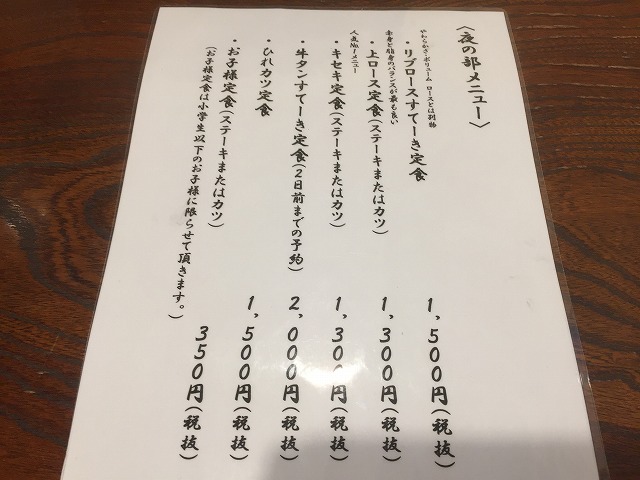 〈夜の部メニュー〉
やわらかさ・ボリューム ロースとは別物
・リブロースすてーき定食 1,500円(税抜)
赤身と脂身のバランスが最も良い
・上ロース定食(ステーキまたはカツ) 1,300円(税抜)
人気No.1メニュー
・キセキ定食(ステーキまたはカツ) 1,300円(税抜)
・牛タンすてーき定食(2日前までの予約) 2,000円(税抜)
・ひれカツ定食 1,500円(税抜)
・お子様定食(ステーキまたはカツ) 350円(税抜)
(お子様定食は小学生以下のお子様に限らせて頂きます。)